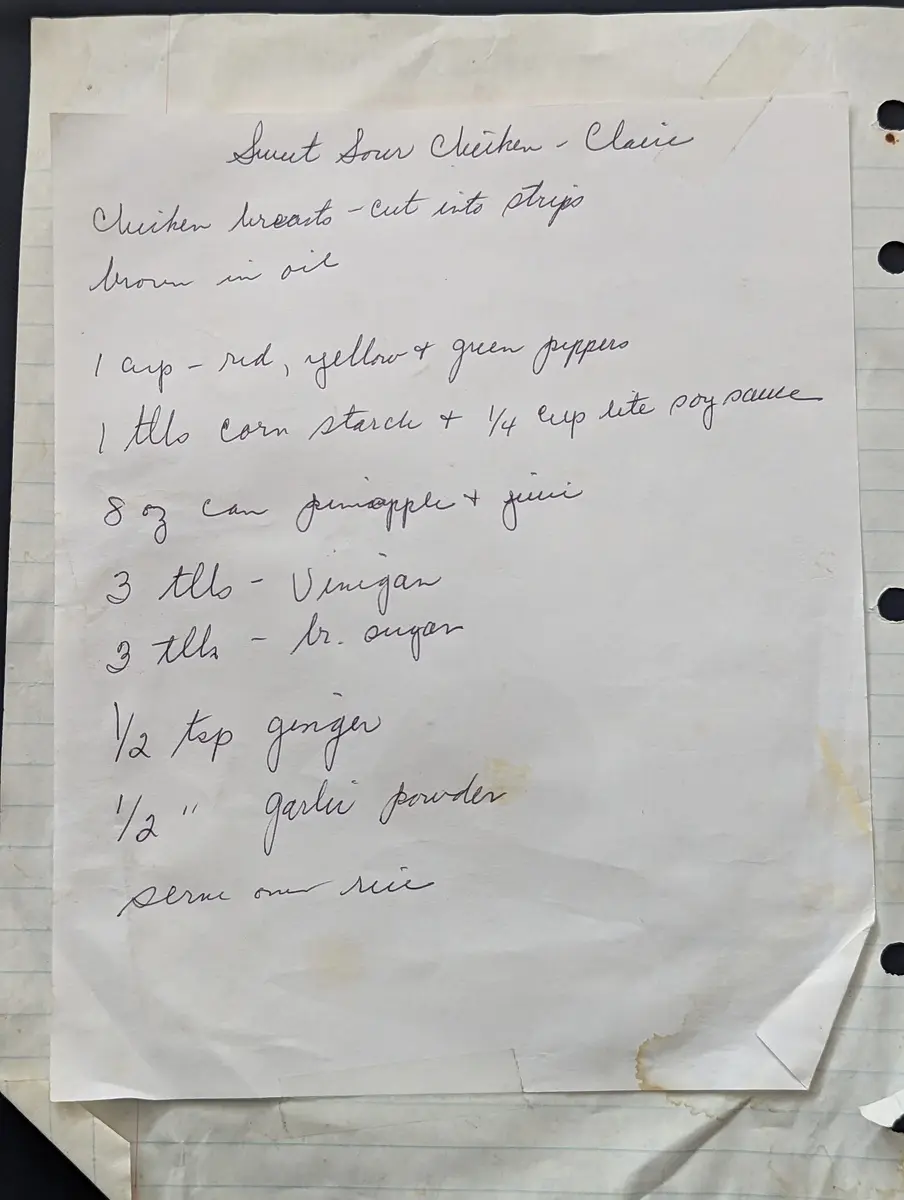 Sweet Sour Chicken - Claire
Chicken breasts - cut into strips
brown in oil
1 cup - red, yellow + green peppers
1 tbls corn starch + 1/4 cup lite soy sauce
8 oz can pineapple + juice
3 tbls - Vinigar
3 tbls - br. sugar
1/2 tsp ginger
1/2 " garlic powder
serve over rice